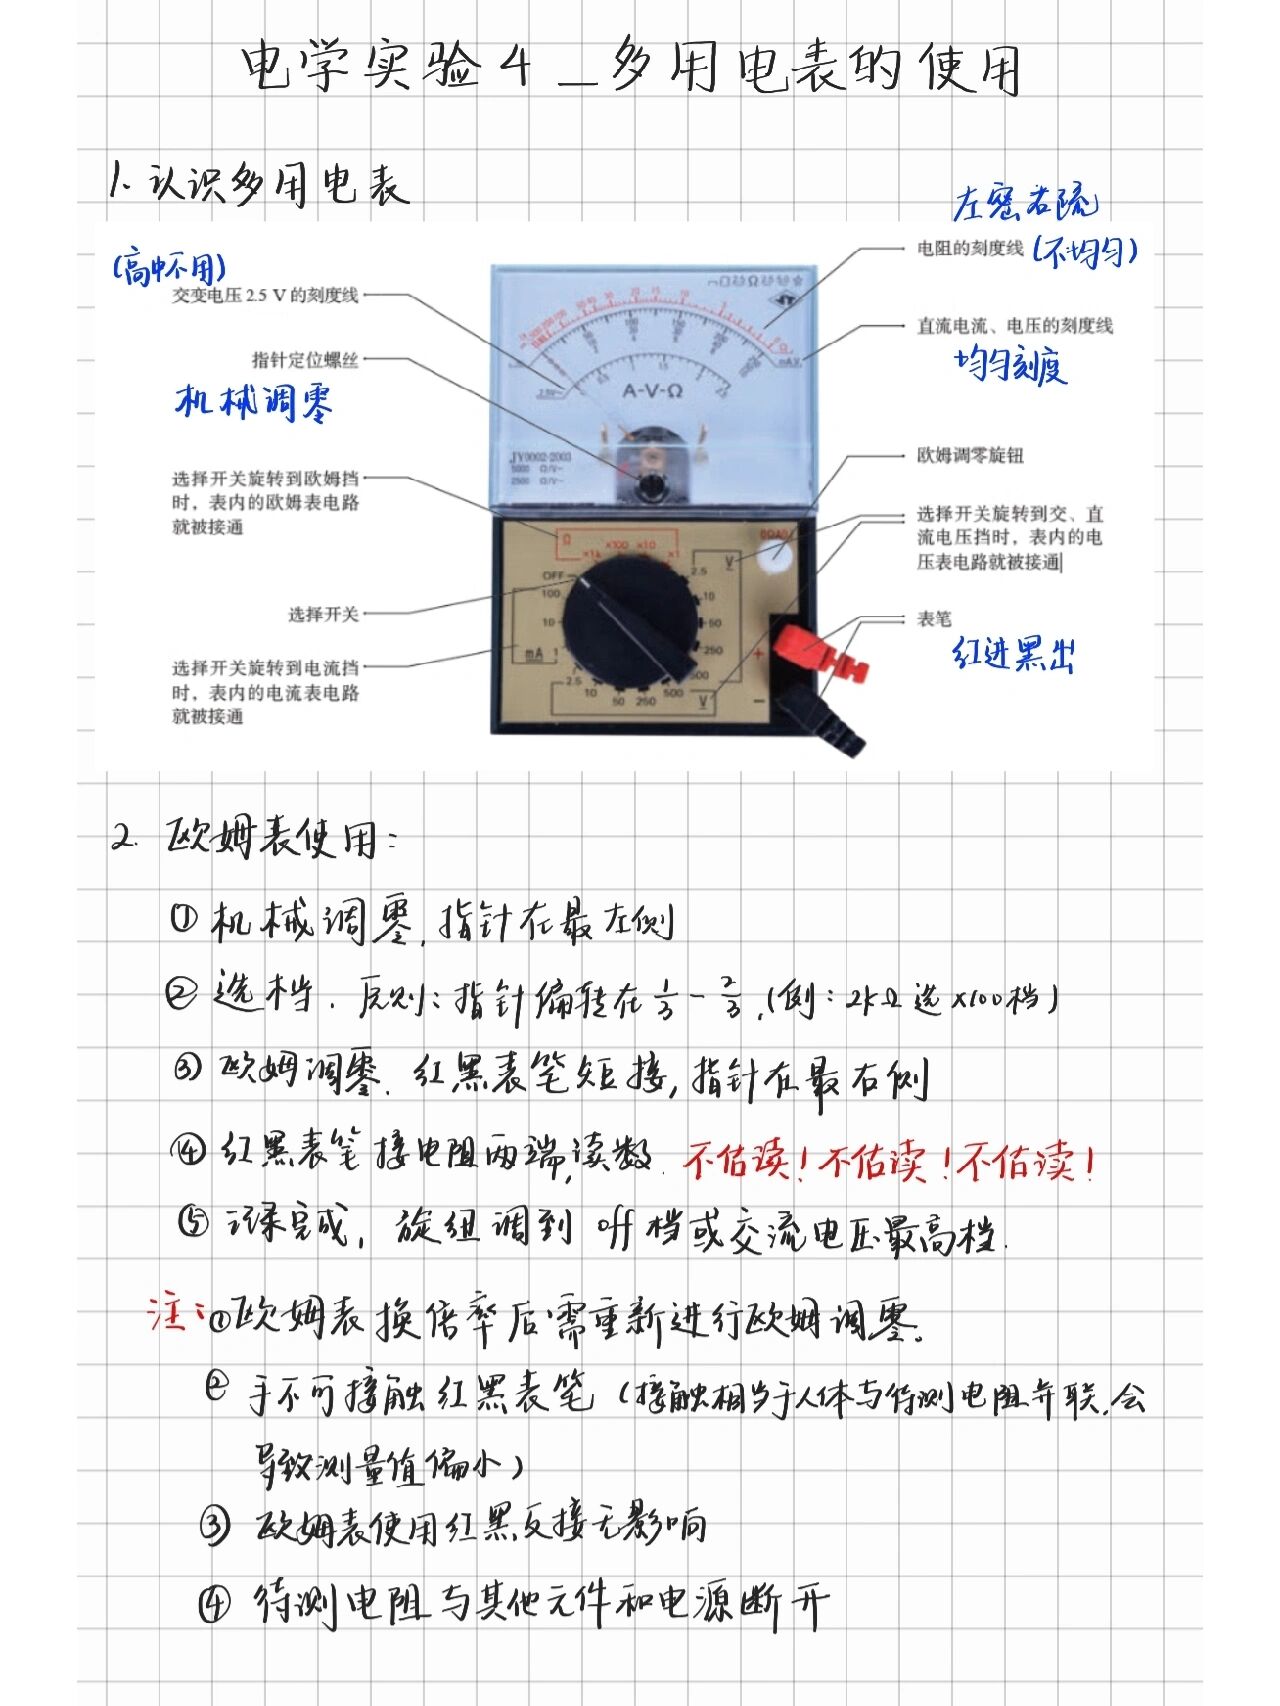 电学实验4_多用电表的使用
1. 认识多用电表
左密右疏
电阻的刻度线 (不均匀)
(高中不用)
交变电压 2.5 V 的刻度线
直流电流、电压的刻度线
均匀刻度
指针定位螺丝
机械调零
A-V-Ω
欧姆调零旋钮
选择开关旋转到欧姆挡
时，表内的欧姆表电路
就被接通
选择开关旋转到交、直
流电压挡时，表内的电
压表电路就被接通
Ω
×1k ×100 ×10 ×1
OFF
100
10
mA 1
2.5
10
50
250
500
V
2.5
10
50
250
500
V
+
−
选择开关
表笔
红进黑出
选择开关旋转到电流挡
时，表内的电流表电路
就被接通
2. 欧姆表使用：
① 机械调零，指针在最左侧
② 选档．原则：指针偏转在 1/3 - 2/3，(例：2kΩ 选 ×100档)
③ 欧姆调零．红黑表笔短接，指针在最右侧
④ 红黑表笔接电阻两端，读数．不估读！不估读！不估读！
⑤ 读完成，旋钮调到 off 档或交流电压最高档．
注：①欧姆表换倍率后需重新进行欧姆调零。
② 手不可接触红黑表笔（接触相当于人体与待测电阻并联，会
导致测量值偏小）
③ 欧姆表使用红黑反接无影响
④ 待测电阻与其他元件和电源断开